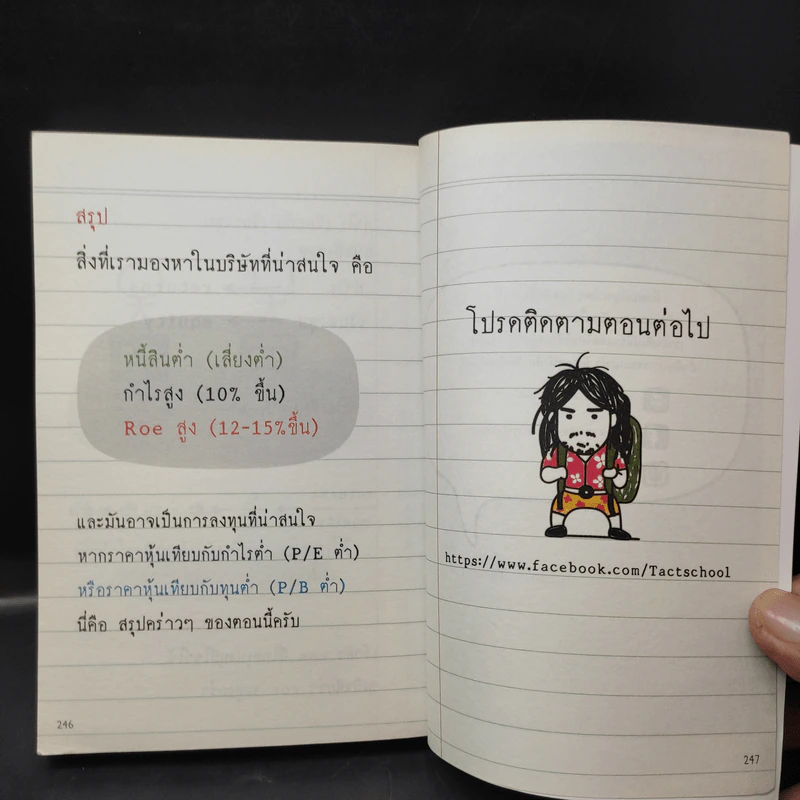 สรุป
สิ่งที่เรามองหาในบริษัทที่น่าสนใจ คือ
หนี้สินต่ำ (เสี่ยงต่ำ)
กำไรสูง (10% ขึ้น)
Roe สูง (12-15%ขึ้น)
และมันอาจเป็นการลงทุนที่น่าสนใจ
หากราคาหุ้นเทียบกับกำไรต่ำ (P/E ต่ำ)
หรือราคาหุ้นเทียบกับทุนต่ำ (P/B ต่ำ)
นี่คือ สรุปคร่าวๆ ของตอนนี้ครับ
246
โปรดติดตามตอนต่อไป
https://www.facebook.com/Tactschool
247